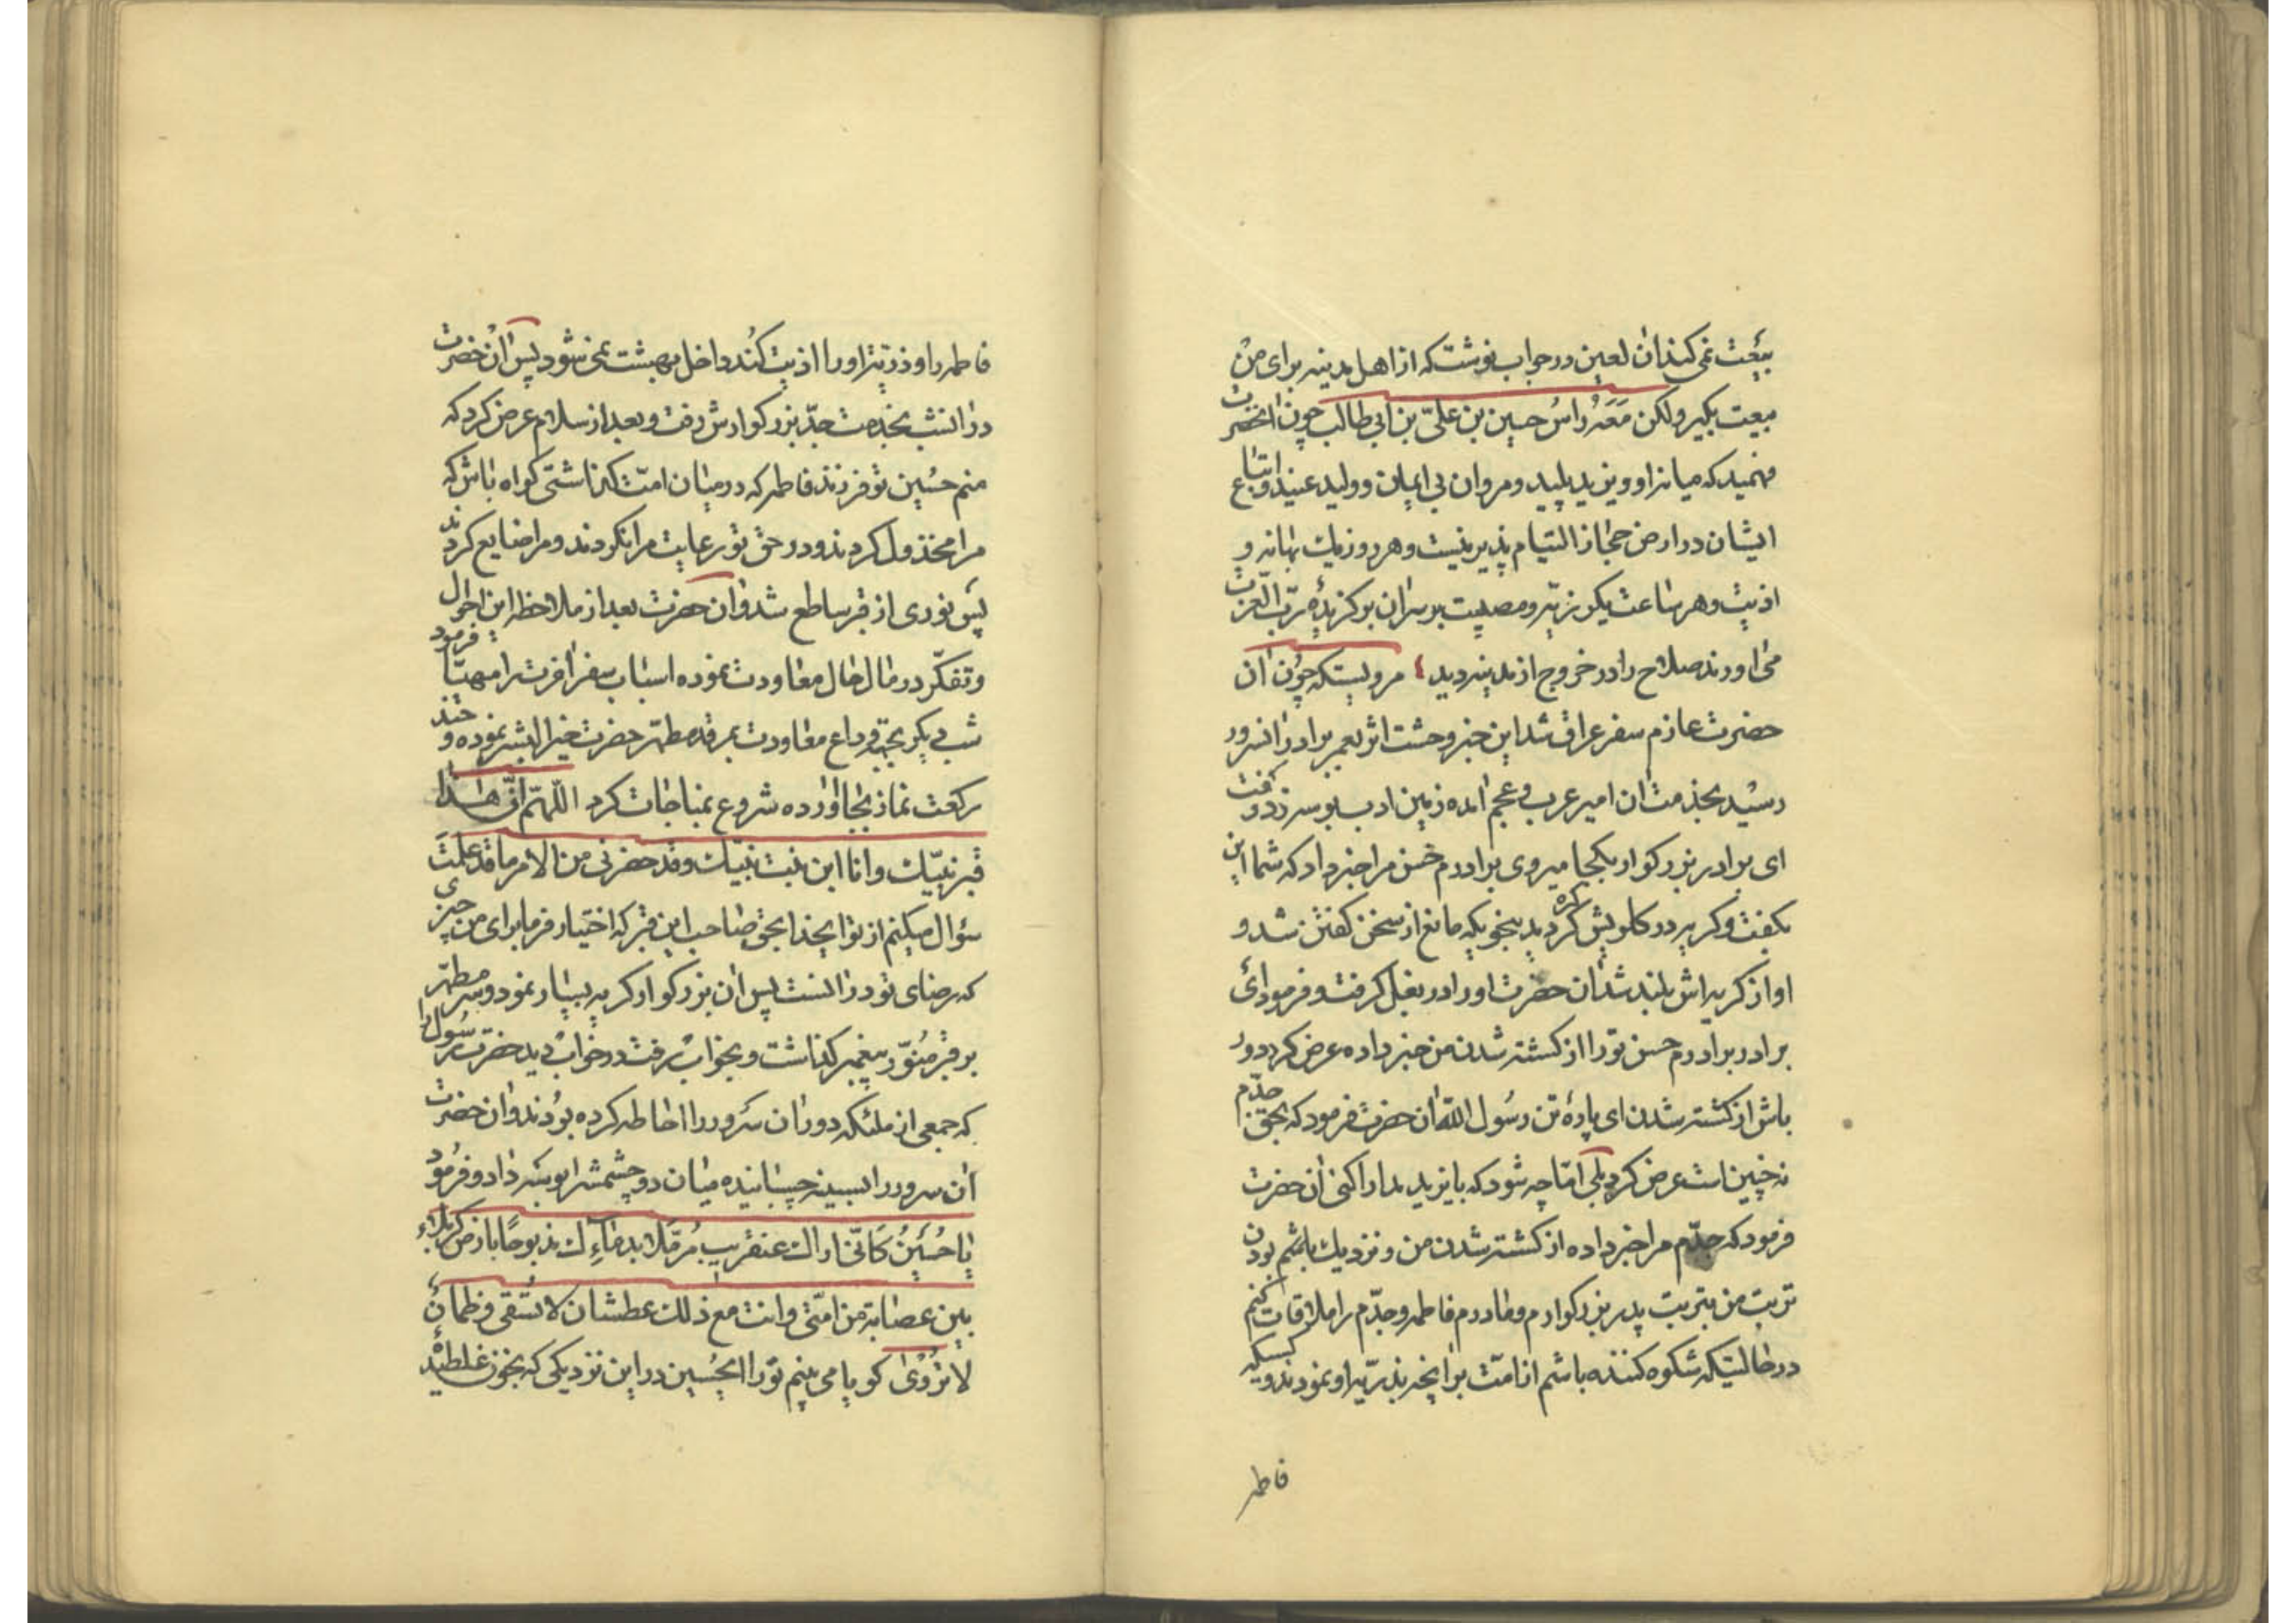 بیعت نمی کنند ان لعین در جواب نوشت که از اهل مدینه برای من
بیعت بکیر ولکن مَعَهُ رَاسُ حسین بن علیّ بن ابی طالب چون انحضرت
فهمید که میانه او و یزید پلید و مروان بی ایمان و ولید عنید و اتباع
ایشان در ارض حجاز التیام پذیر نیست و هر روز یك بهانه و
اذیت و هر ساعت یکو رزیّه و مصیبت بر سر ان برکزیدهٔ ربّ العزت
می اورند صلاح را در خروج از مدینه دید مرویستکه چون ان
حضرت عازم سفر عراق شد این خبر وحشت اثر بعمر برادر انسرور
رسید بخدمت ان امیر عرب و عجم امده زمین ادب بوسه زد و کفت
ای برادر بزرکوار بکجا میروی برادرم حسن مرا خبر داد که شما این
بکفت و کریه در کلویش کره کردید بنحویکه مانع از سخن کفتن شد و
اواز کریه اش بلند شد ان حضرت او را در بغل کرفت و فرمود ای
برادر برادرم حسن تو را از کشته شدن من خبر داده عرض کرد دور
باش از کشته شدن ای پارهٔ تن رسول الله ان حضرت فرمود که بحق جدّم
نه چنین است عرض کرد بلی امّا چه شود که با یزید مدارا کنی ان حضرت
فرمود که جدّم مرا خبر داده از کشته شدن من و نزدیك باشم بودن
تربت من بتربت پدر بزرکوارم و مادرم فاطمه و جدّم را ملاقات کنم
در حالتیکه شکوه کننده باشم از امّت برانچه بذرّیه او نمودند و کسیکه
فاطمه
فاطمه را و ذرّیّه او را اذیت کند داخل بهشت نمی شود پس ان حضرت
در انشب بخدمت جدّ بزرکوارش رفت و بعد از سلام عرض کرد که
منم حُسین تو فرزند فاطمه که در میان امّت کذاشتی کواه باش که
مرا مخذول کردند و در حق تو رعایت مرا نکردند و مرا ضایع کردند
پس نوری از قبر ساطع شد و ان حضرت بعد از ملاحظه این احوال
و تفکّر در مال حال معاودت نموده اسباب سفر اخرت را مهیّا فرمود
شب دیکر بجهة وداع معاودت بمرقد مطهّر حضرت خیر البشر نموده و چند
رکعت نماز بجا اورده شروع بمناجات کرد اللّهمّ انّ هذا
قبر نبیّك وانا ابن بنت نبیّك وقد حضرنی من الامر ما قد علمتَ
سؤال میکنم از تو ایخدا بحق صاحب این قبر که اختیار فرما برای من چیزی
که رضای تو در انست پس ان بزرکوار کریه بسیار نمود و سر مطهّر
بر قبر مُنوّر پیغمبر کذاشت و بخواب رفت در خواب دید حضرت رسُول را
که جمعی از ملئکه دور ان سَرور را احاطه کرده بودند و ان حضرت
ان سرور را بسینه چسبانیده میان دو چشمش را بوسه داد و فرمود
یا حُسَینُ کَانّی اراك عنقریب مُرمّلا بدماءِك مذبوحًا بارض کربلاء
بین عصابة من امّتی وانت مع ذلك عطشان لا تُسقی وظمانُ
لا تُرْویٰ کویا می بینم تو را ایحُسین در این نزدیکی که بخون غلطیده